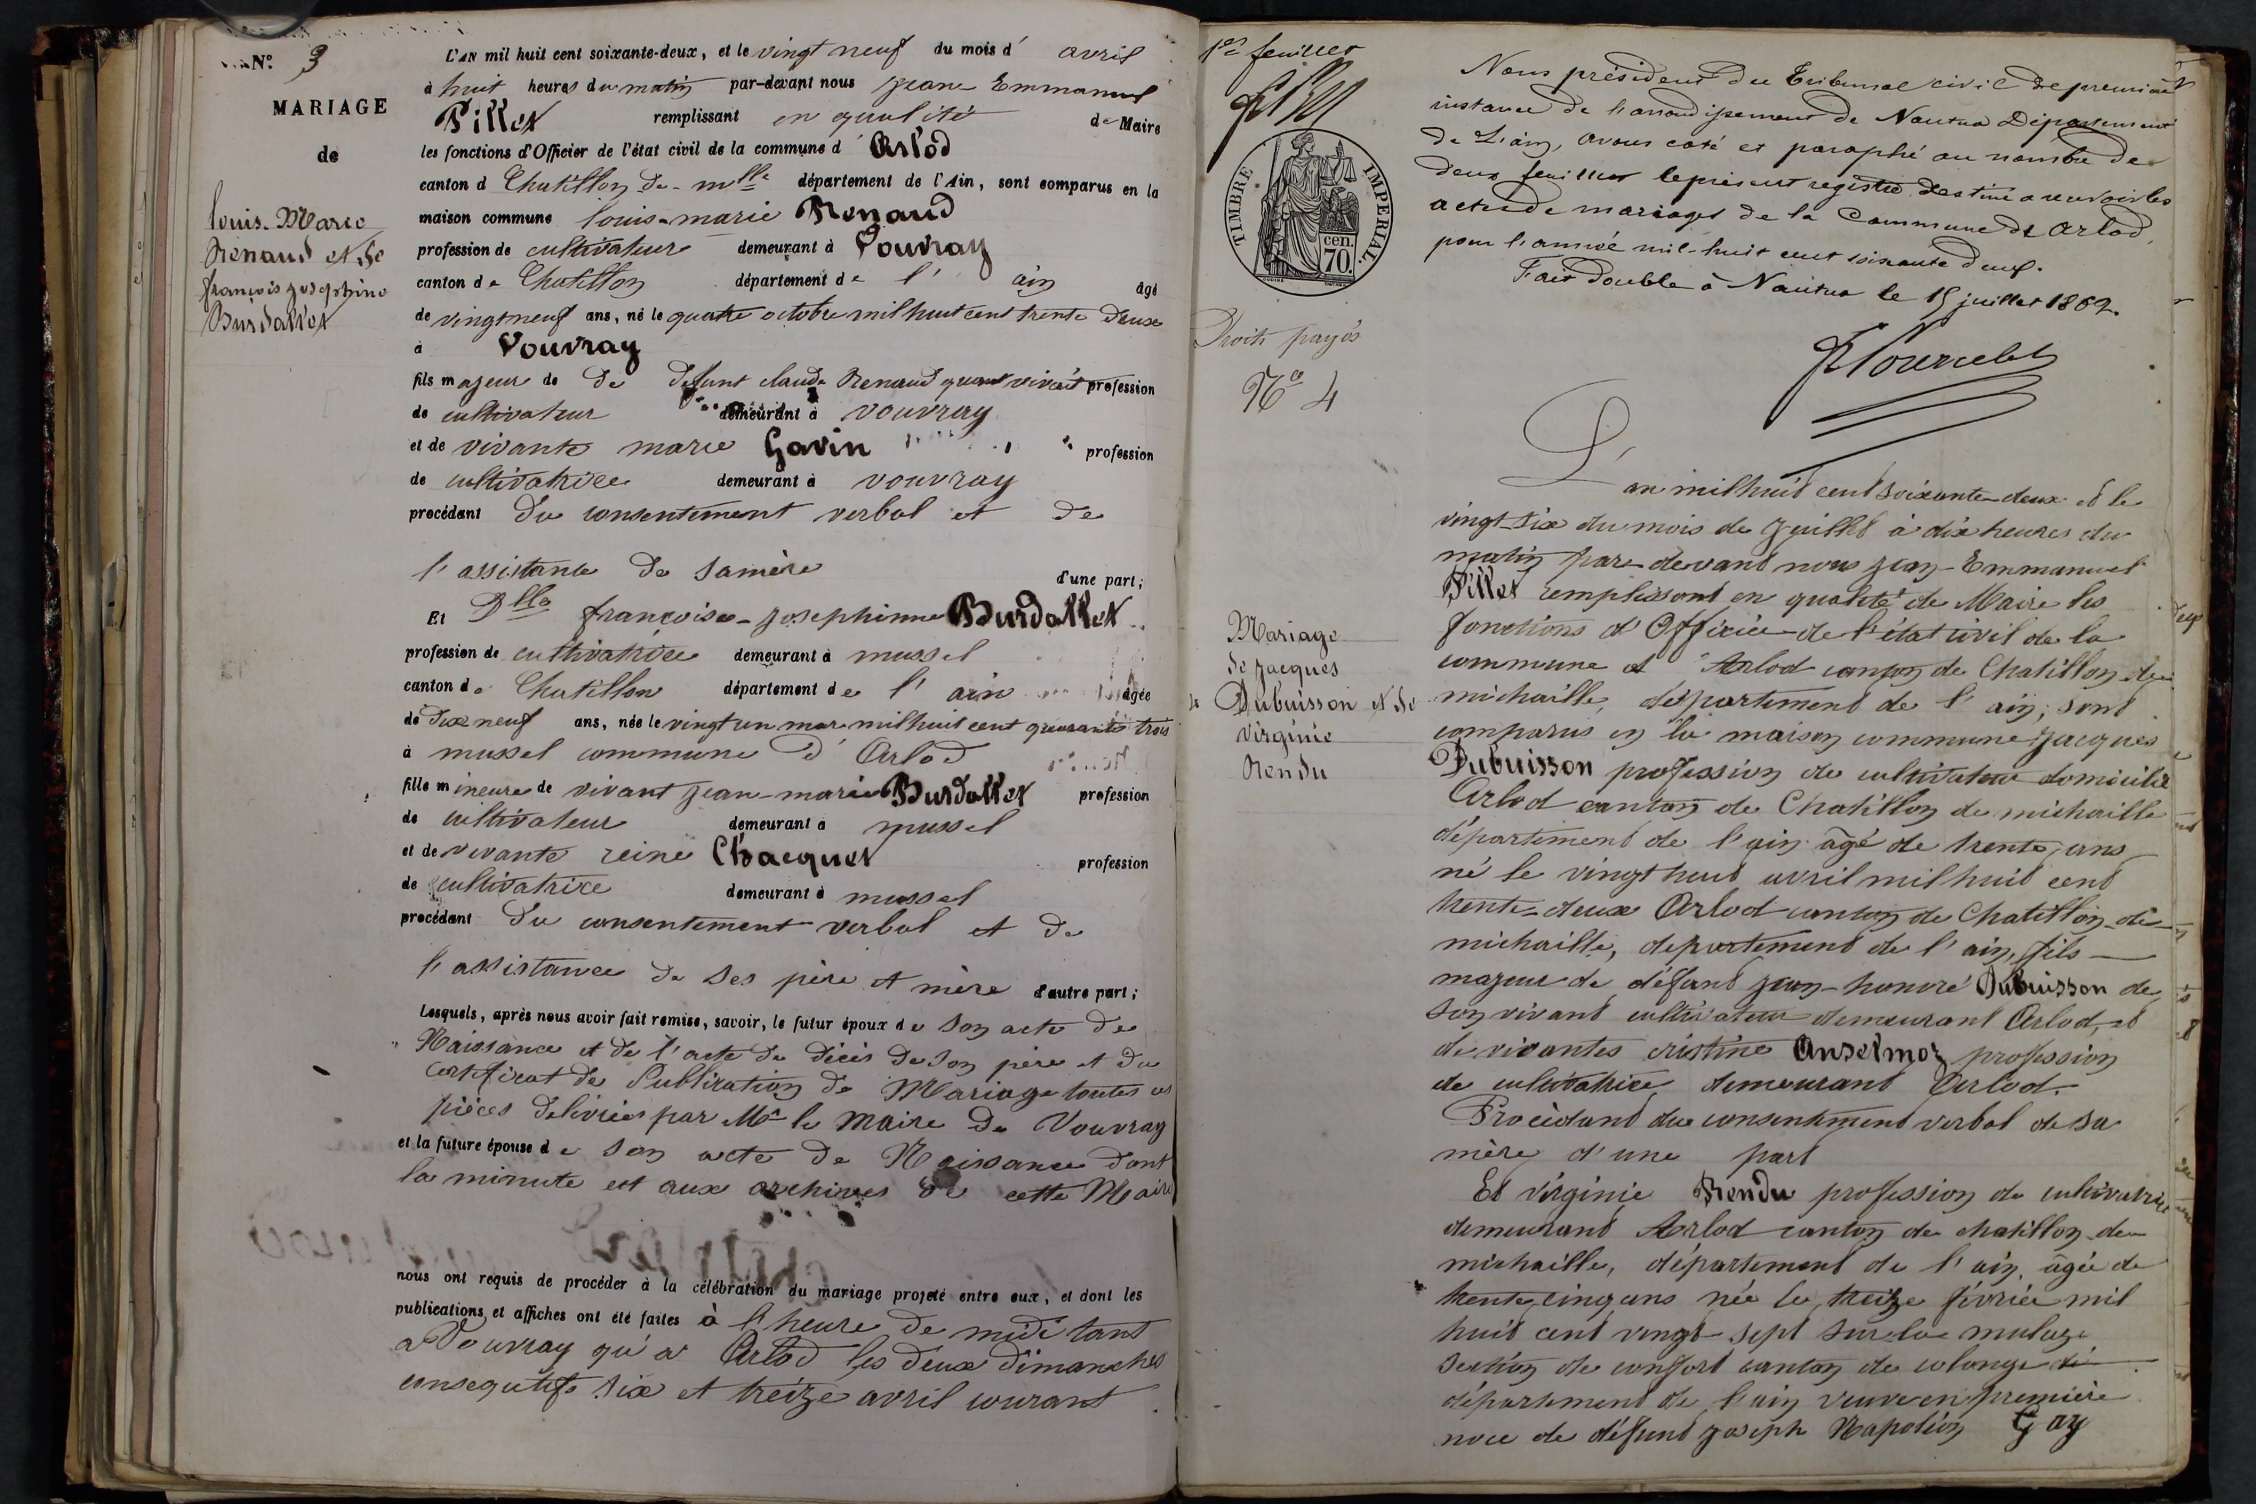 N.º 3
MARIAGE
de
Louis-Marie
Renaud et de
françois josephine
Burdallet
L'AN mil huit cent soixante-deux, et le vingt neuf du mois d' avril
à huit heures du matin par-devant nous jean Emmanuel
Pillet remplissant en qualité de Maire
les fonctions d'Officier de l'état civil de la commune d' Arlod
canton d Chatillon de mlle département de l'Ain, sont comparus en la
maison commune louis-marie Renaud
profession de cultivateur demeurant à Vouvray
canton de Chatillon département de l' ain âgé
de vingt neuf ans, né le quatre octobre mil huit cent trente deux
à Vouvray
fils majeur de De defunt claude Renaud quant vivait profession
de cultivateur demeurant à vouvray
et de vivante marie Gavin profession
de cultivatrice demeurant à vouvray
procédant du consentement verbal et de
l'assistance de sa mère d'une part;
Et Dlle françoise-josephinne Burdallet
profession de cultivatrice demeurant à mussel
canton de Chatillon département de l' ain âgée
de dix neuf ans, née le vingt un mars mil huit cent quarante trois
à mussel commune d' Arlod
fille mineure de vivant jean-marie Burdallet profession
de cultivateur demeurant à mussel
et de vivante reine Chacquet profession
de cultivatrice demeurant à mussel
procédant du consentement verbal et de
l'assistance de ses père et mère d'autre part;
Lesquels, après nous avoir fait remise, savoir, le futur époux de son acte de
Naissance et de l'acte de décès de son père et du
certificat de Publication de Mariage toutes ces
pièces delivrées par Mr le Maire de Vouvray
et la future épouse de son acte de Naissance dont
la minute est aux archives de cette Mairie
nous ont requis de procéder à la célébration du mariage projeté entre eux, et dont les
publications et affiches ont été faites à l'heure de midi tant
a Vouvray qu'a Arlod les deux dimanches
consequtifs six et treize avril courant
1er feuillet
TIMBRE IMPÉRIAL
cen.
70.
Droits payés
Nous président du Tribunal civil de première
instance de l'arrondissement de Nantua Département
de L'ain, avons coté et paraphé au nombre de
deux feuillets le présent registre destiné a recevoir les
actes de mariages de la Commune de Arlod,
pour l'année mil-huit cent soixante deux.
Fait double à Nantua le 15 juillet 1862.
No 4
Mariage
de jacques
Dubuisson et de
virginie
Rendu
L'an mil huit cent soixante-deux et le
vingt-six du mois de juillet à dix heures du
matin par-devant nous jean-Emmanuel
Pillet remplissant en qualité de Maire les
fonctions d'Officier de l'état civil de la
commune d'Arlod canton de Chatillon de
michaille, département de l'ain, sont
comparus en la maison commune jacques
Dubuisson profession de cultivateur domicilié
Arlod canton de Chatillon de michaille
département de l'ain âgé de trente ans
né le vingt huit avril mil huit cent
trente-deux Arlod canton de Chatillon-de
michaille, département de l'ain, fils
majeur de défunt jean-honoré Dubuisson de
son vivant cultivateur demeurant Arlod, et
de vivantes cristine Anselmoz profession
de cultivatrice demeurant Arlod.
Procédant du consentement verbal de sa
mère d'une part
Et virginie Rendu profession de cultivatrice
demeurant Arlod canton de chatillon de
michaille, département de l'ain, âgée de
trente cinq ans née le treize février mil
huit cent vingt-sept sur la mulaz
section de confort canton de colonge
département de l'ain veuve en première
noce de défunt joseph Napoléon Gay